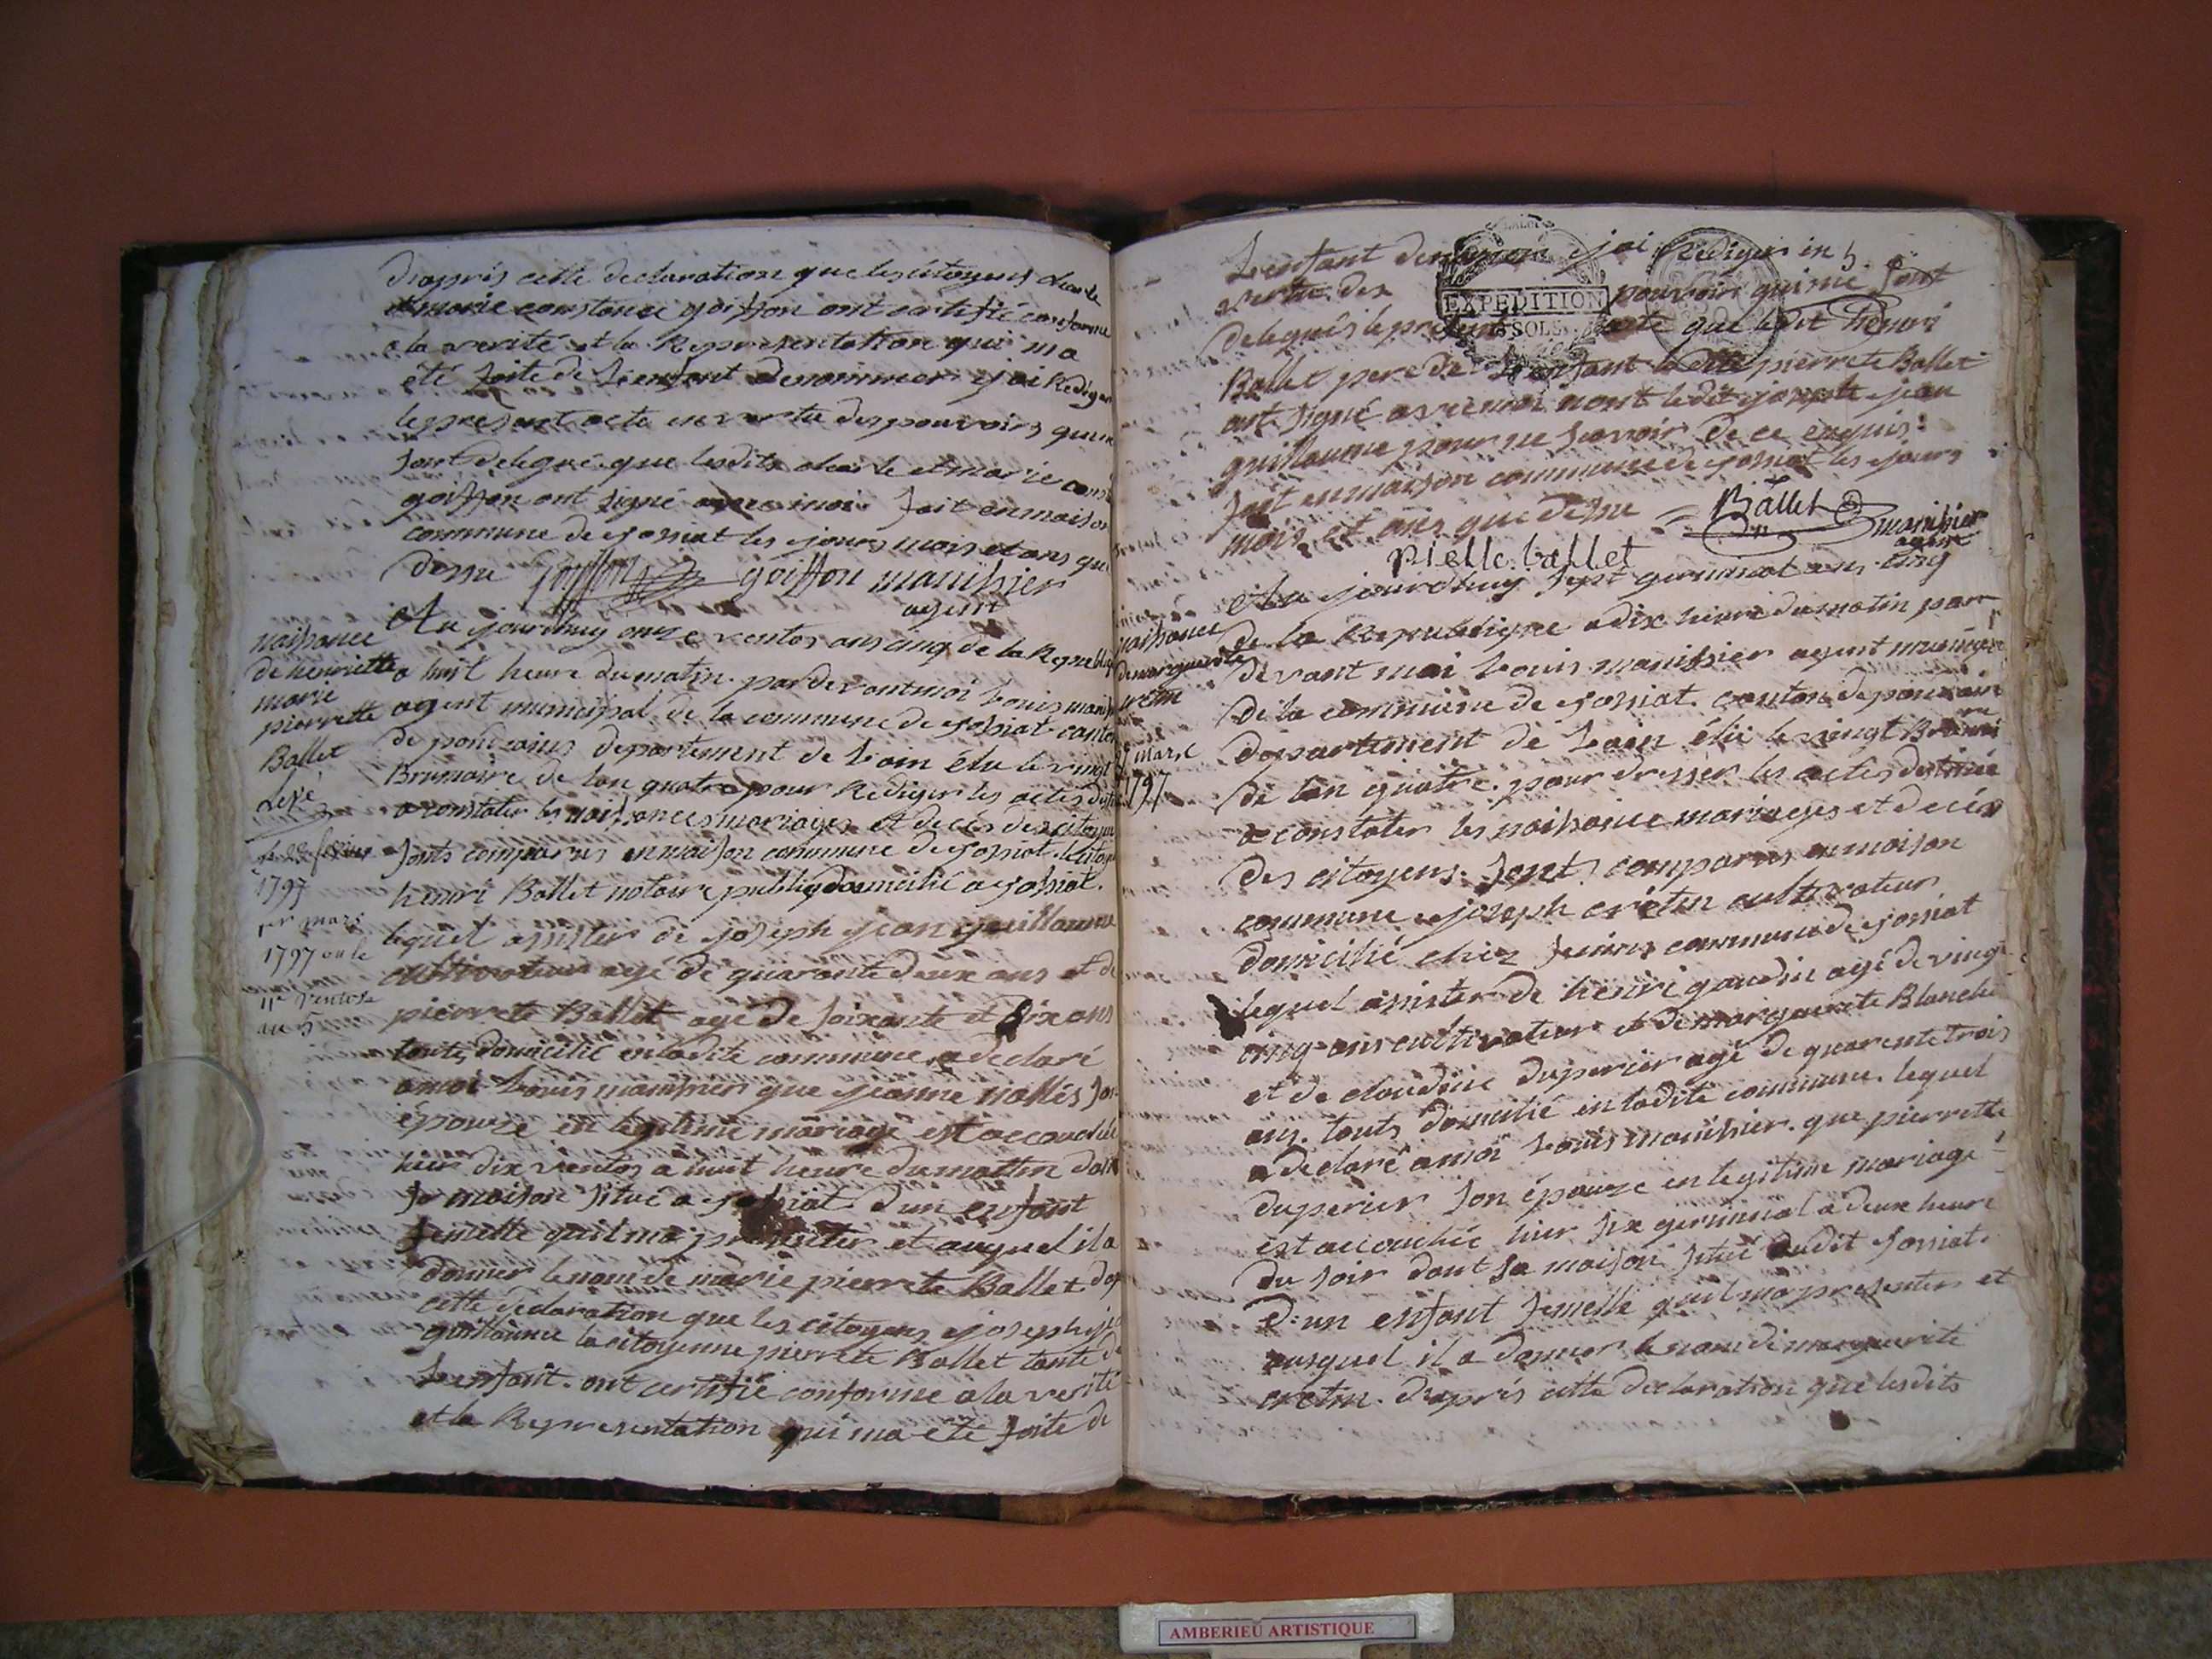 D'après cette declaration que les citoyens
et marie constance goiffon ont certifié conforme
a la verité et la Representattion qui ma
été faite de L'enfant denommer j'ai Rediger
le present acte en vertu des pouvoirs qui me
sont delegué que lesdits et marie
goiffon ont signé avec moi fait en maison
commune de jossiat les jours mois et ans que
dessu goiffon goiffon manissier
agent
naissance
de henriette
marie
pierrette
Ballet
Levé
le 28 fevrier
1797
1er mars
1797 ou le
11e ventose
an 5
Au jourdhuy onze ventos ans cinq de la
a huit heure du matin par devant moi Louis
agent municipal de la commune de jossiat
de departement de Lain élu le vingt
Brumaire de lan quatre pour Rediger les actes
a constater les naissances mariages et decés des
sonts comparus en maison commune de jossiat
henri Ballet notaire public domicilié a jossiat.
lequel assister de joseph jean guillaume
cultivateur agé de quarante deux ans et de
pierrete Ballet agé de soixante et dix ans
touts domicilié en ladite commune a declaré
amoi Louis manissier que jeanne
épouze en legitime mariage est accouchée
hier dix ventos a huit heure du mattin
sa maison situé a jossiat d'un enfant
femelle quil ma presenter et auquel il a
donner le nom de marie pierrete Ballet
cette declaration que les citoyens joseph
guillaume la citoyenne pierrete Ballet tante
L'enfant. ont certifié conforme a la verité
et la Representation qui ma été faite de
L'enfant denommé jai Rediger in 5
vertu des pouvoirs qui me sont
delegués le present acte que ledit henri
Ballet pere de L'enfant ladite pierrete Ballet
ont signé avec moi nont ledit joseph jean
guillaume pour ne savoir de ce enquis.
fait en maison commune de jossiat les jours
mois et ans que dessu Ballet manissier
agent
pielle. ballet
EXPEDITION
SOLS
naissance
de marguerite
cretin
mars
1797
Au jourdhuy sept germinal ans cinq
de la Republique a dix heure du matin par
devant moi Louis manissier agent
de la commune de jossiat canton de
departement de Lain élu le vingt
de lan quatre. pour dresser les actes destiné
a constater les naissance mariages et decés
des citoyens. sont comparus en maison
commune joseph crétin cultivateur
domicilié chez commune de jossiat
lequel assister de henri gaudin agé de vingt
cinq ans cultivateur et de marguerite Blanche
et de claudine duperier agé de quarente trois
ans. touts domicilié en ladite commune. lequel
a declaré amoi Louis manissier. que pierrette
duperier son épouze en legitime mariage
est accouchée hier six germinal a deux heure
du soir dant sa maison situé audit jossiat.
d'un enfant femelle quil ma presenter et
ausquel il a donner le nom de marguerite
cretin. d'après cette declaration que lesdits
AMBERIEU ARTISTIQUE